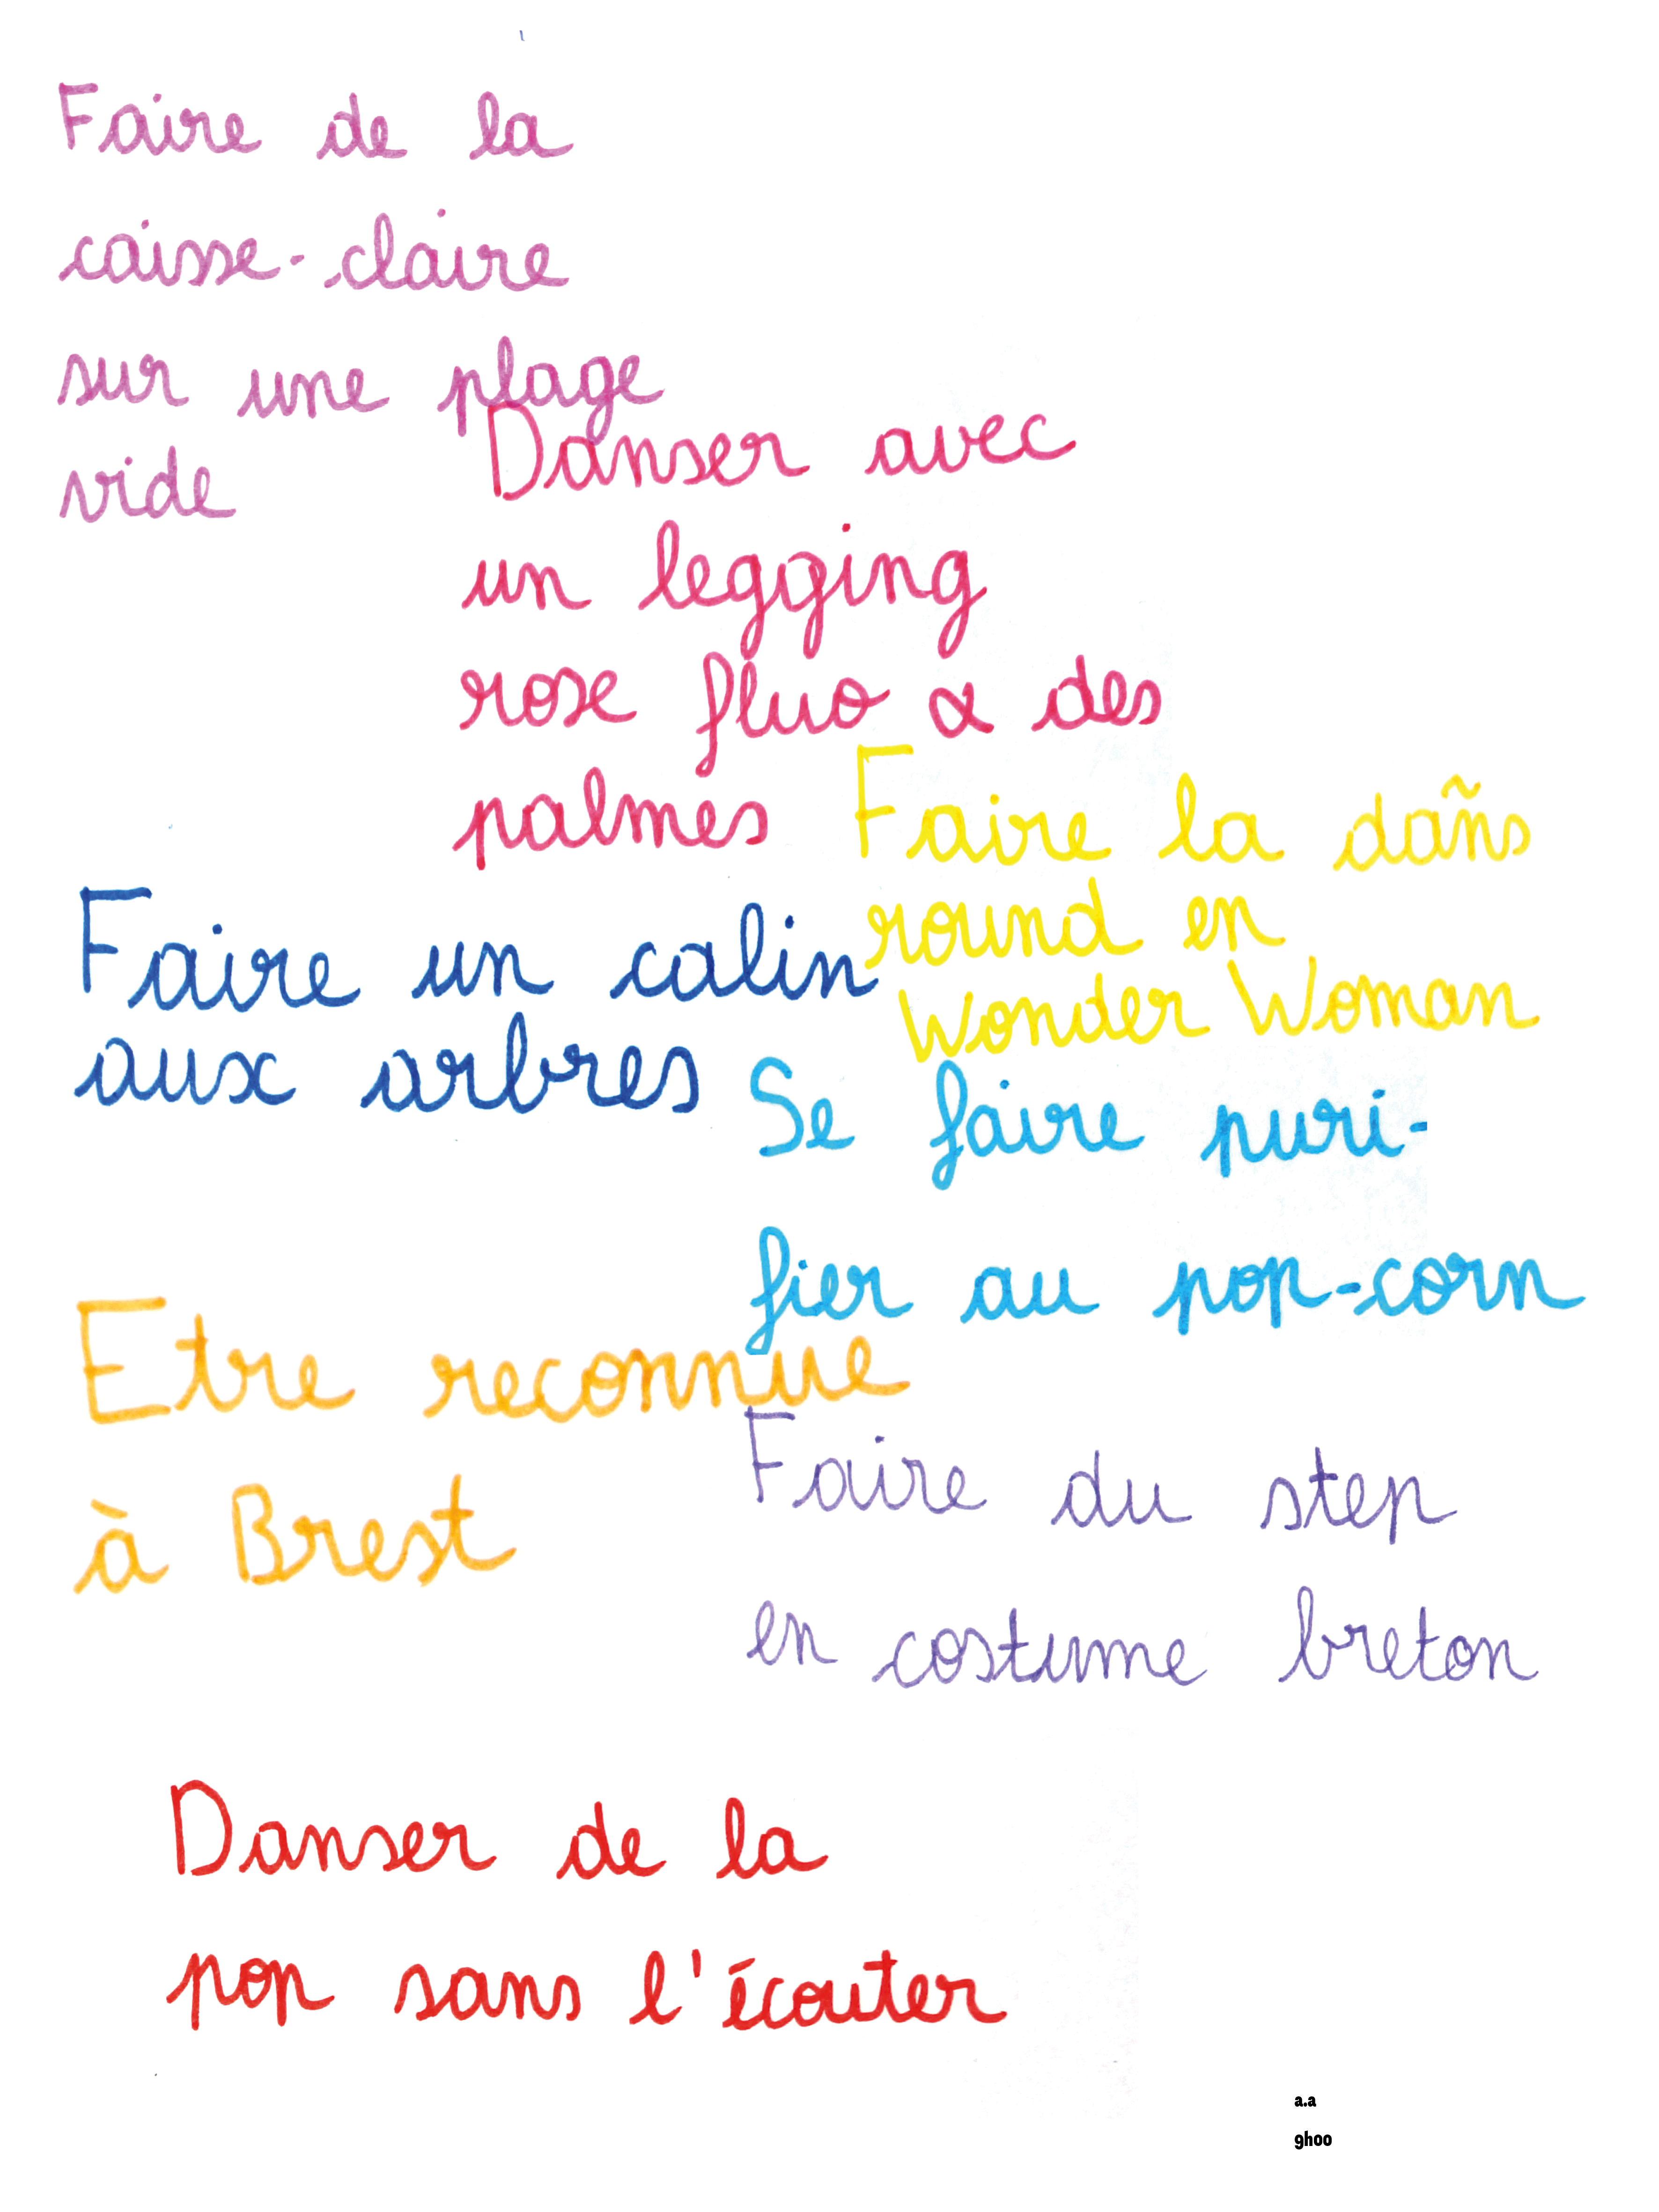 Faire de la
caisse-claire
sur une plage
vide
Danser avec
un legging
rose fluo & des
palmes
Faire la dañs
round en
Wonder Woman
Faire un calin
aux arbres
Se faire puri-
fier au pop-corn
Etre reconnue
à Brest
Faire du step
en costume breton
Danser de la
pop sans l'écouter
a.a
9h00